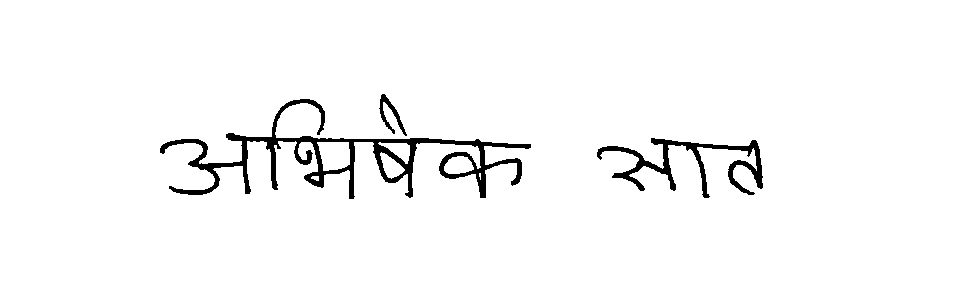 अभिषेक सात